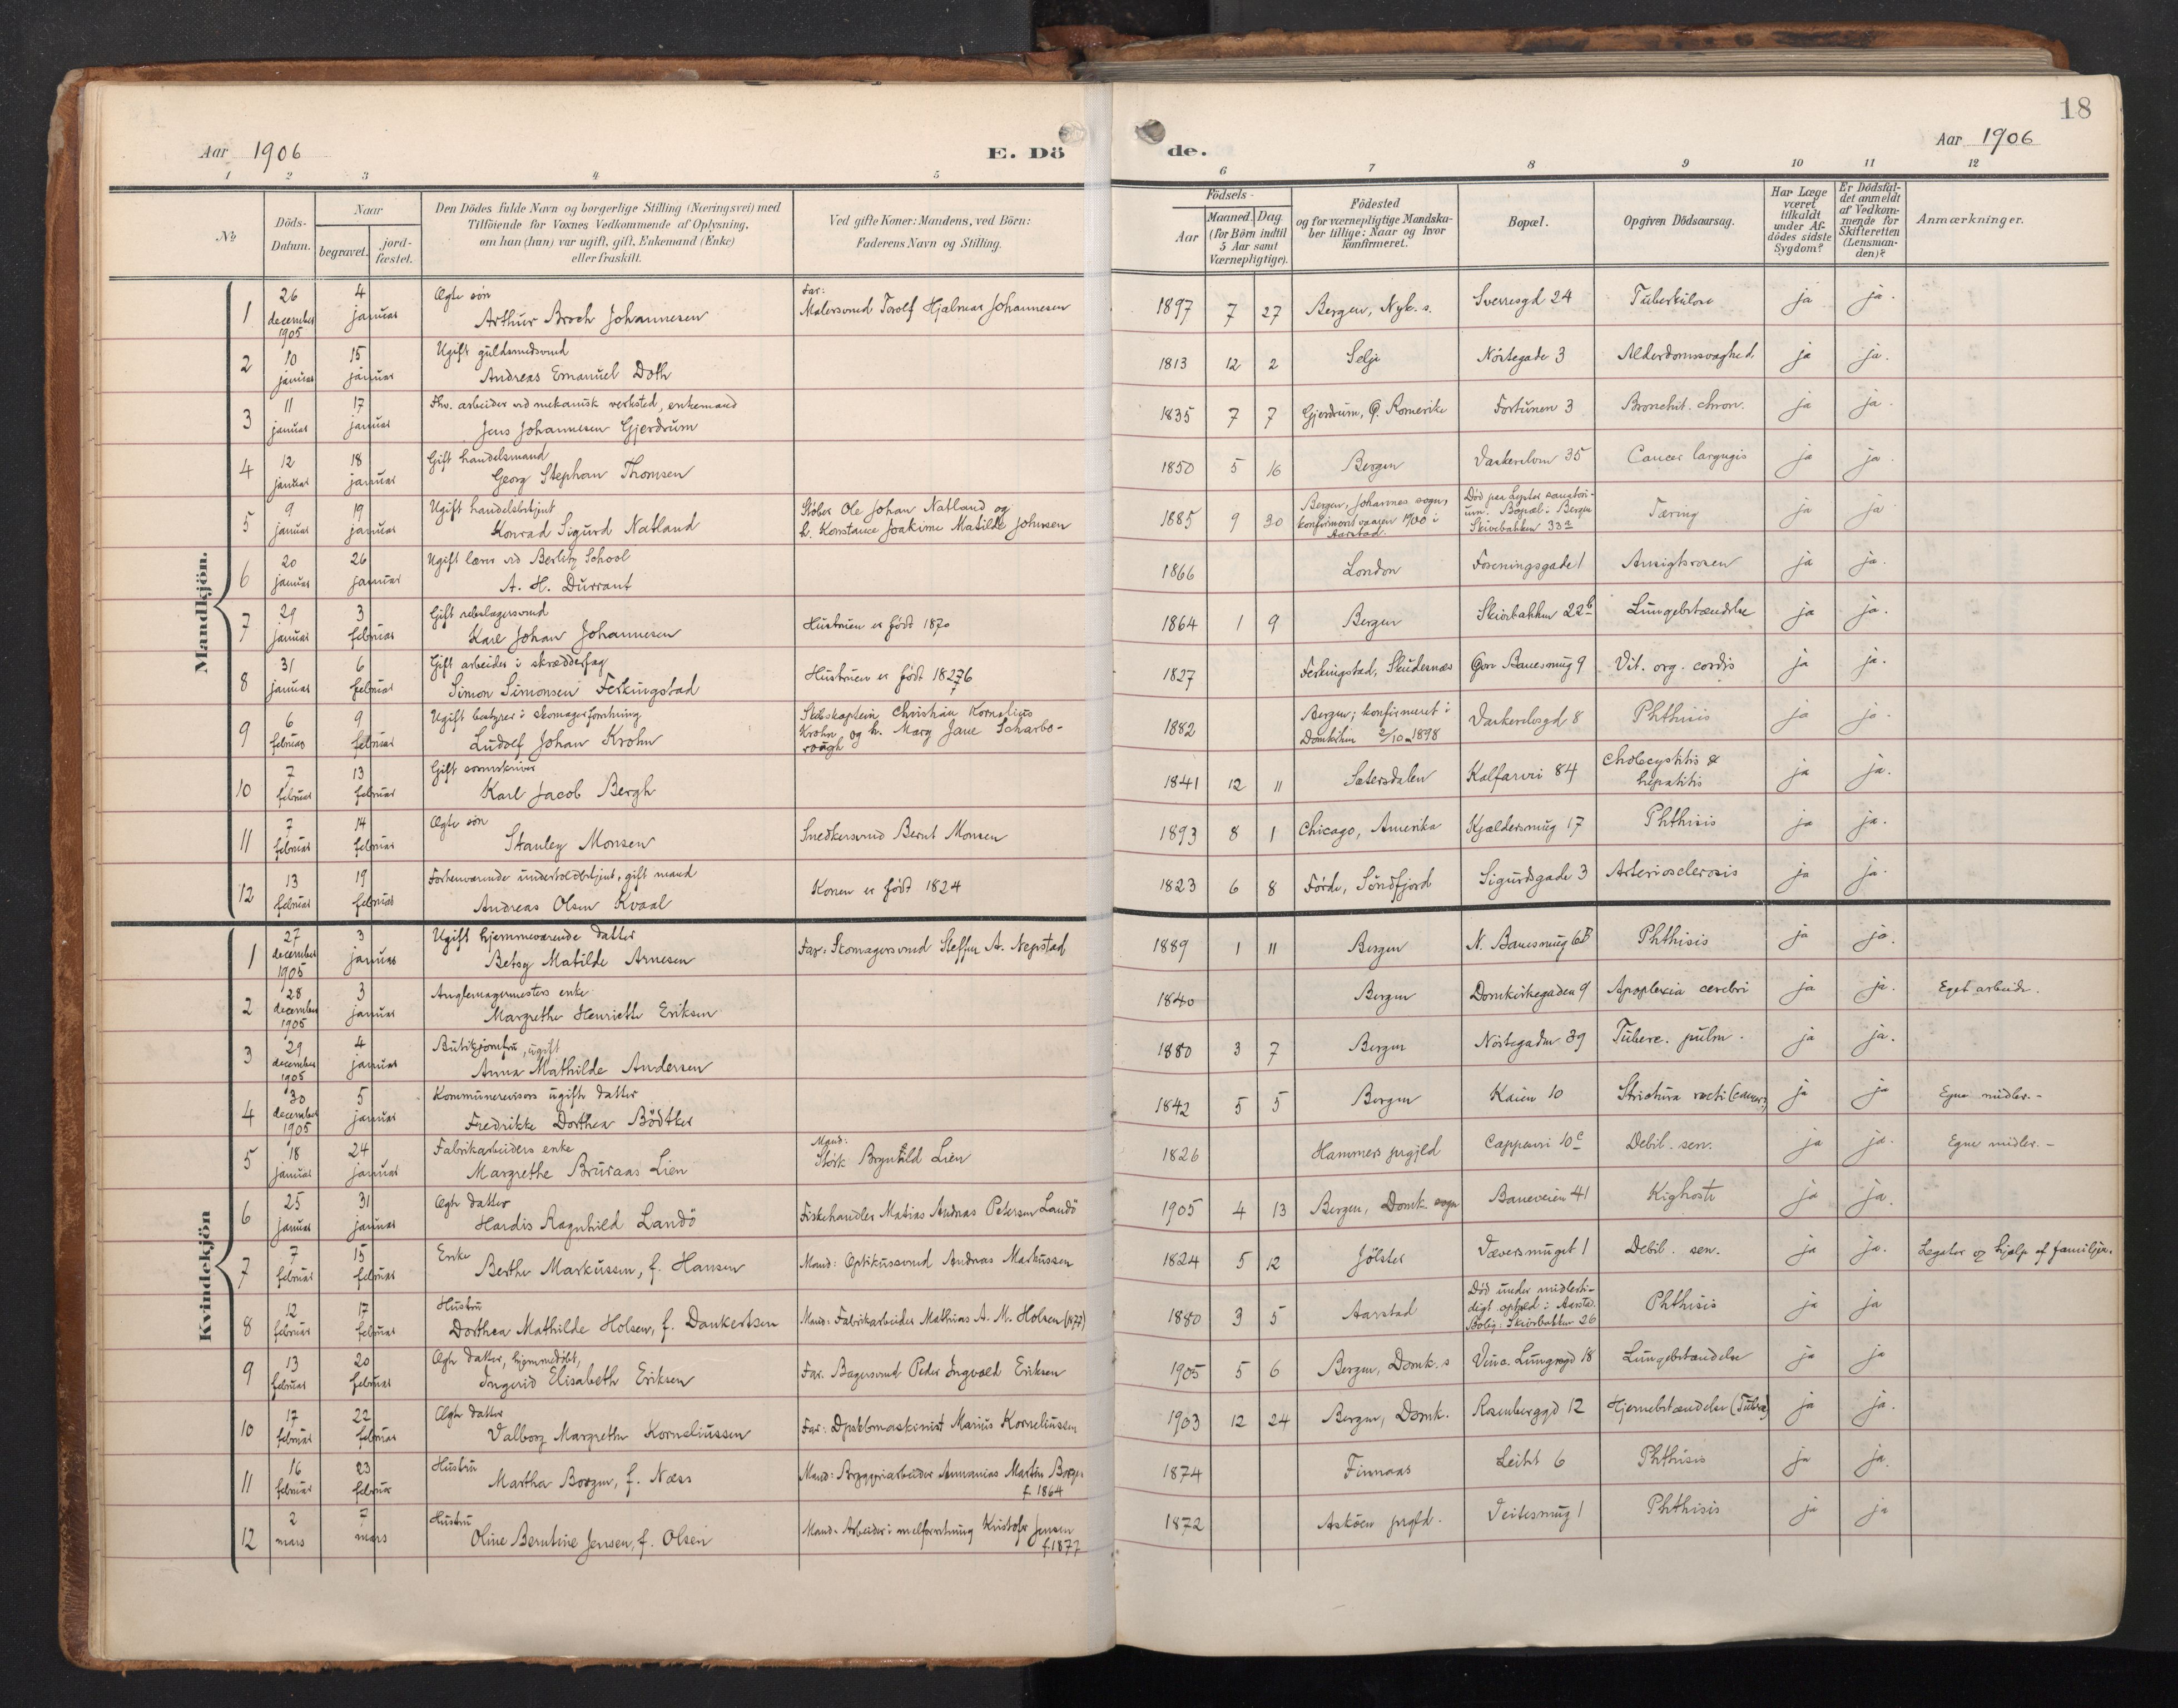 18
Aar 1906
E. Dö
de.
Aar 1906
1 2 3 4 5
6 7 8 9 10 11 12
No
Döds-
Datum.
Naar
begravet.
jord-
fæstet.
Den Dödes fulde Navn og borgerlige Stilling (Næringsvei) med
Tilföiende for Voxnes Vedkommende af Oplysning,
om han (hun) var ugift, gift, Enkemand (Enke)
eller fraskilt.
Ved gifte Koner: Mandens, ved Börn:
Faderens Navn og Stilling.
Födsels-
Aar
Maaned. Dag.
(for Börn indtil
5 Aar samt
Værnepligtige).
Födested
og for værnepligtige Mandska-
ber tillige: Naar og hvor
konfirmeret.
Bopæl.
Opgiven Dödsaarsag.
Har Læge
været
tilkaldt
under Af-
dödes sidste
Sygdom?
Er Dödsfal-
det anmeldt
af Vedkom-
mende for
Skifteretten
(Lensman-
den)?
Anmærkninger.
Mandkjön.
1 26 december 1905 4 januar Ægte søn
Arthur Broch Johannesen Far:
Malersvend Torolf Hjalmar Johannesen 1897 7 27 Bergen, Nyk. s. Sverresgd 24 Tuberkulose ja ja.
2 10 januar 15 januar Ugift guldsmedsvend
Andreas Emanuel Doth 1813 12 2 Selje Nöstegade 3 Alderdomssvaghed. ja ja.
3 11 januar 17 januar Fhv. arbeider ved mekanisk verksted, enkemand
Jens Johannesen Gjerdrum 1835 7 7 Gjerdrum, Ø. Romerike Fortunen 3 Bronchit. chron. ja ja.
4 12 januar 18 januar Gift handelsmand
Georg Stephan Thomsen 1850 5 16 Bergen Vaskerelven 35 Cancer laryngis ja ja.
5 9 januar 19 januar Ugift handelsbetjent
Konrad Sigurd Natland Støber Ole Johan Natland og
h. Konstance Joakime Matilde Johnsen 1885 9 30 Bergen, Johannes sogn,
konfirmert vaaren 1900 i
Aarstad. Död paa Lyster sanatori-
um. Bopæl: Bergen
Skivebakken 33a Tæring ja ja
6 20 januar 26 januar Ugift lærer ved Berlitz School
A. H. Durrant 1866 London Foreningsgade 1 Ansigtsrosen ja ja.
7 29 januar 3 februar Gift reberslagersvend
Karl Johan Johannesen Hustruen er født 1870 1864 1 9 Bergen Skivebakken 22b Lungebetændelse ja ja.
8 31 januar 6 februar Gift arbeider i skrædderfag
Simon Simonsen Ferkingstad Hustruen er født 18276 1827 Ferkingstad, Skudesnæs Øvre Banesmug 9 Vit. org. cordis ja ja.
9 6 februar 9 februar Ugift bestyrer i skomagerforretning
Ludolf Johan Krohn Skibskaptein Christian Kornelius
Krohn og h. Mary Jane Scharbo-
rough 1882 Bergen; konfirmeret i
Domkirken 2/10 1898 Vaskerelvsgd 8 Phthisis ja ja.
10 7 februar 13 februar Gift sorenskriver
Karl Jacob Bergh 1841 12 11 Sætersdalen Kalfarvei 84 Cholecystitis &
hepatitis ja ja.
11 7 februar 14 februar Ægte søn
Stanley Monsen Snedkersvend Bernt Monsen 1893 8 1 Chicago, Amerika Kjældersmug 17 Phthisis ja ja.
12 13 februar 19 februar Forhenværende underfoldbetjent, gift mand
Andreas Olsen Kvaal Konen er født 1824 1823 6 8 Förde, Söndfjord Sigurdsgade 3 Arteriosclerosis ja ja.
Kvindekjön
1 27 december 1905 3 januar Ugift hjemmeværende datter
Betsy Matilde Arnesen Far: Skomagersvend Steffen A. Nepstad 1889 1 11 Bergen N. Banesmug 6B Phthisis ja ja.
2 28 december 1905 3 januar enke
Margrethe Henriette Eriksen 1840 Bergen Domkirkegaden 9 Apoplexia cerebri ja ja. Eget arbeide.
3 29 december 1905 4 januar Butikjomfru, ugift
Anna Mathilde Andersen 1880 3 7 Bergen Nöstegaden 39 Tuberc. pulm. ja ja.
4 30 december 1905 5 januar Kommunerevisors ugifte datter
Fredrikke Dorthea Bödtker 1842 5 5 Bergen Kaien 10 Strictura recti (cancer) ja ja Egne midler.-
5 18 januar 24 januar Fabrikarbeiders enke
Margrethe Bruraas Lien Mand:
Störk Brynhild Lien 1826 Hammers prgjld Cappevei 10c Debil. sen. ja ja. Egne midler.-
6 25 januar 31 januar Ægte datter
Hardis Ragnhild Landö Fiskehandler Matias Andreas Petersen Landö 1905 4 13 Bergen, Domk. sogn Baneveien 41 Kighoste ja ja.
7 7 februar 15 februar Enke
Berthe Markussen, f. Hansen Mand: Optikussvend Andreas Markussen 1824 5 12 Jölster Væversmuget 1 Debil. sen. ja ja. Legater og hjælp af familjen.
8 12 februar 17 februar Hustru
Dorthea Mathilde Holsen, f. Dankertsen Mand: Fabrikarbeider Mathias A. M. Holsen (1877) 1880 3 5 Aarstad Död under midlerti-
digt ophold i Aarstad.
Bolig: Skivebakken 26 Phthisis ja ja
9 13 februar 20 februar Ægte datter, hjemmedöbt,
Ingerid Elisabeth Eriksen Far. Bagersvend Peder Ingvald Eriksen 1905 5 6 Bergen, Domk. s Vinc. Lungesgd 18 Lungebetændelse ja ja
10 17 februar 22 februar Ægte datter
Valborg Margrethe Korneliussen Far: Marius Korneliussen 1903 12 24 Bergen, Domk. Rosenberggd 12 Hjernebetændelse (Tuberc) ja ja.
11 16 februar 23 februar Hustru
Martha Borgen, f. Næss Mand: Bryggeriarbeider Annanias Martin Borgen
f. 1864 1874 Finnaas Leitet 6 Phthisis ja ja.
12 2 mars 7 mars Hustru
Oline Berntine Jensen, f. Olsen Mand: Arbeider i melforretning Kristofer Jensen
f. 1877 1872 Asköen prgjld. Veitesmug 1 Phthisis ja ja